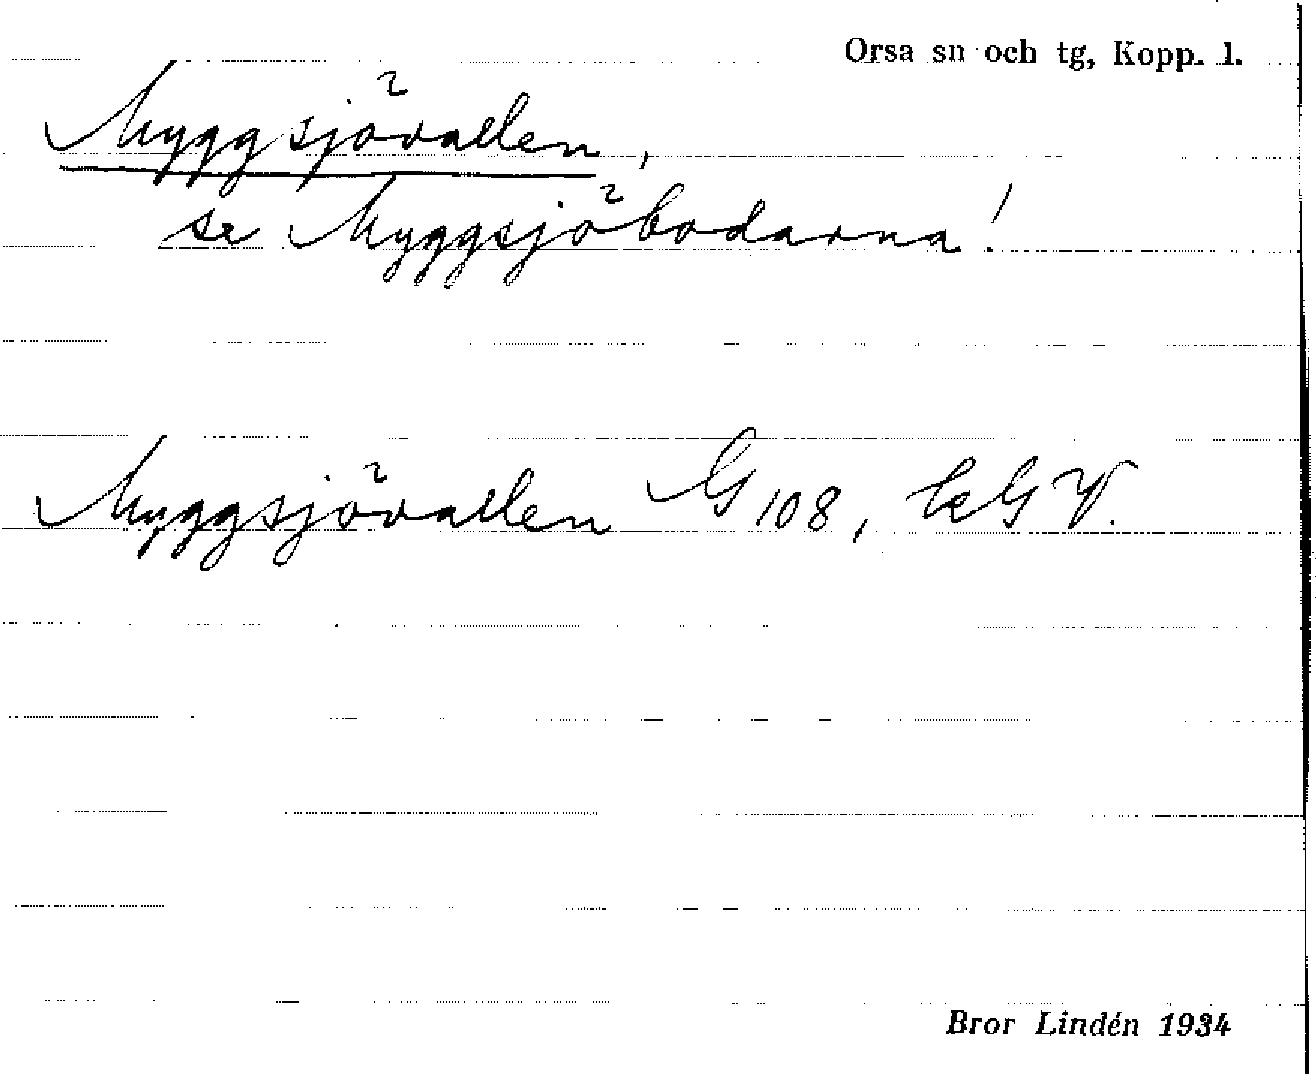 Orsa sn och tg, Kopp. l.
Myggsjövallen,
se Myggsjöbodarna!
Myggsjövallen G 108, kGV.
Bror Lindén 1934